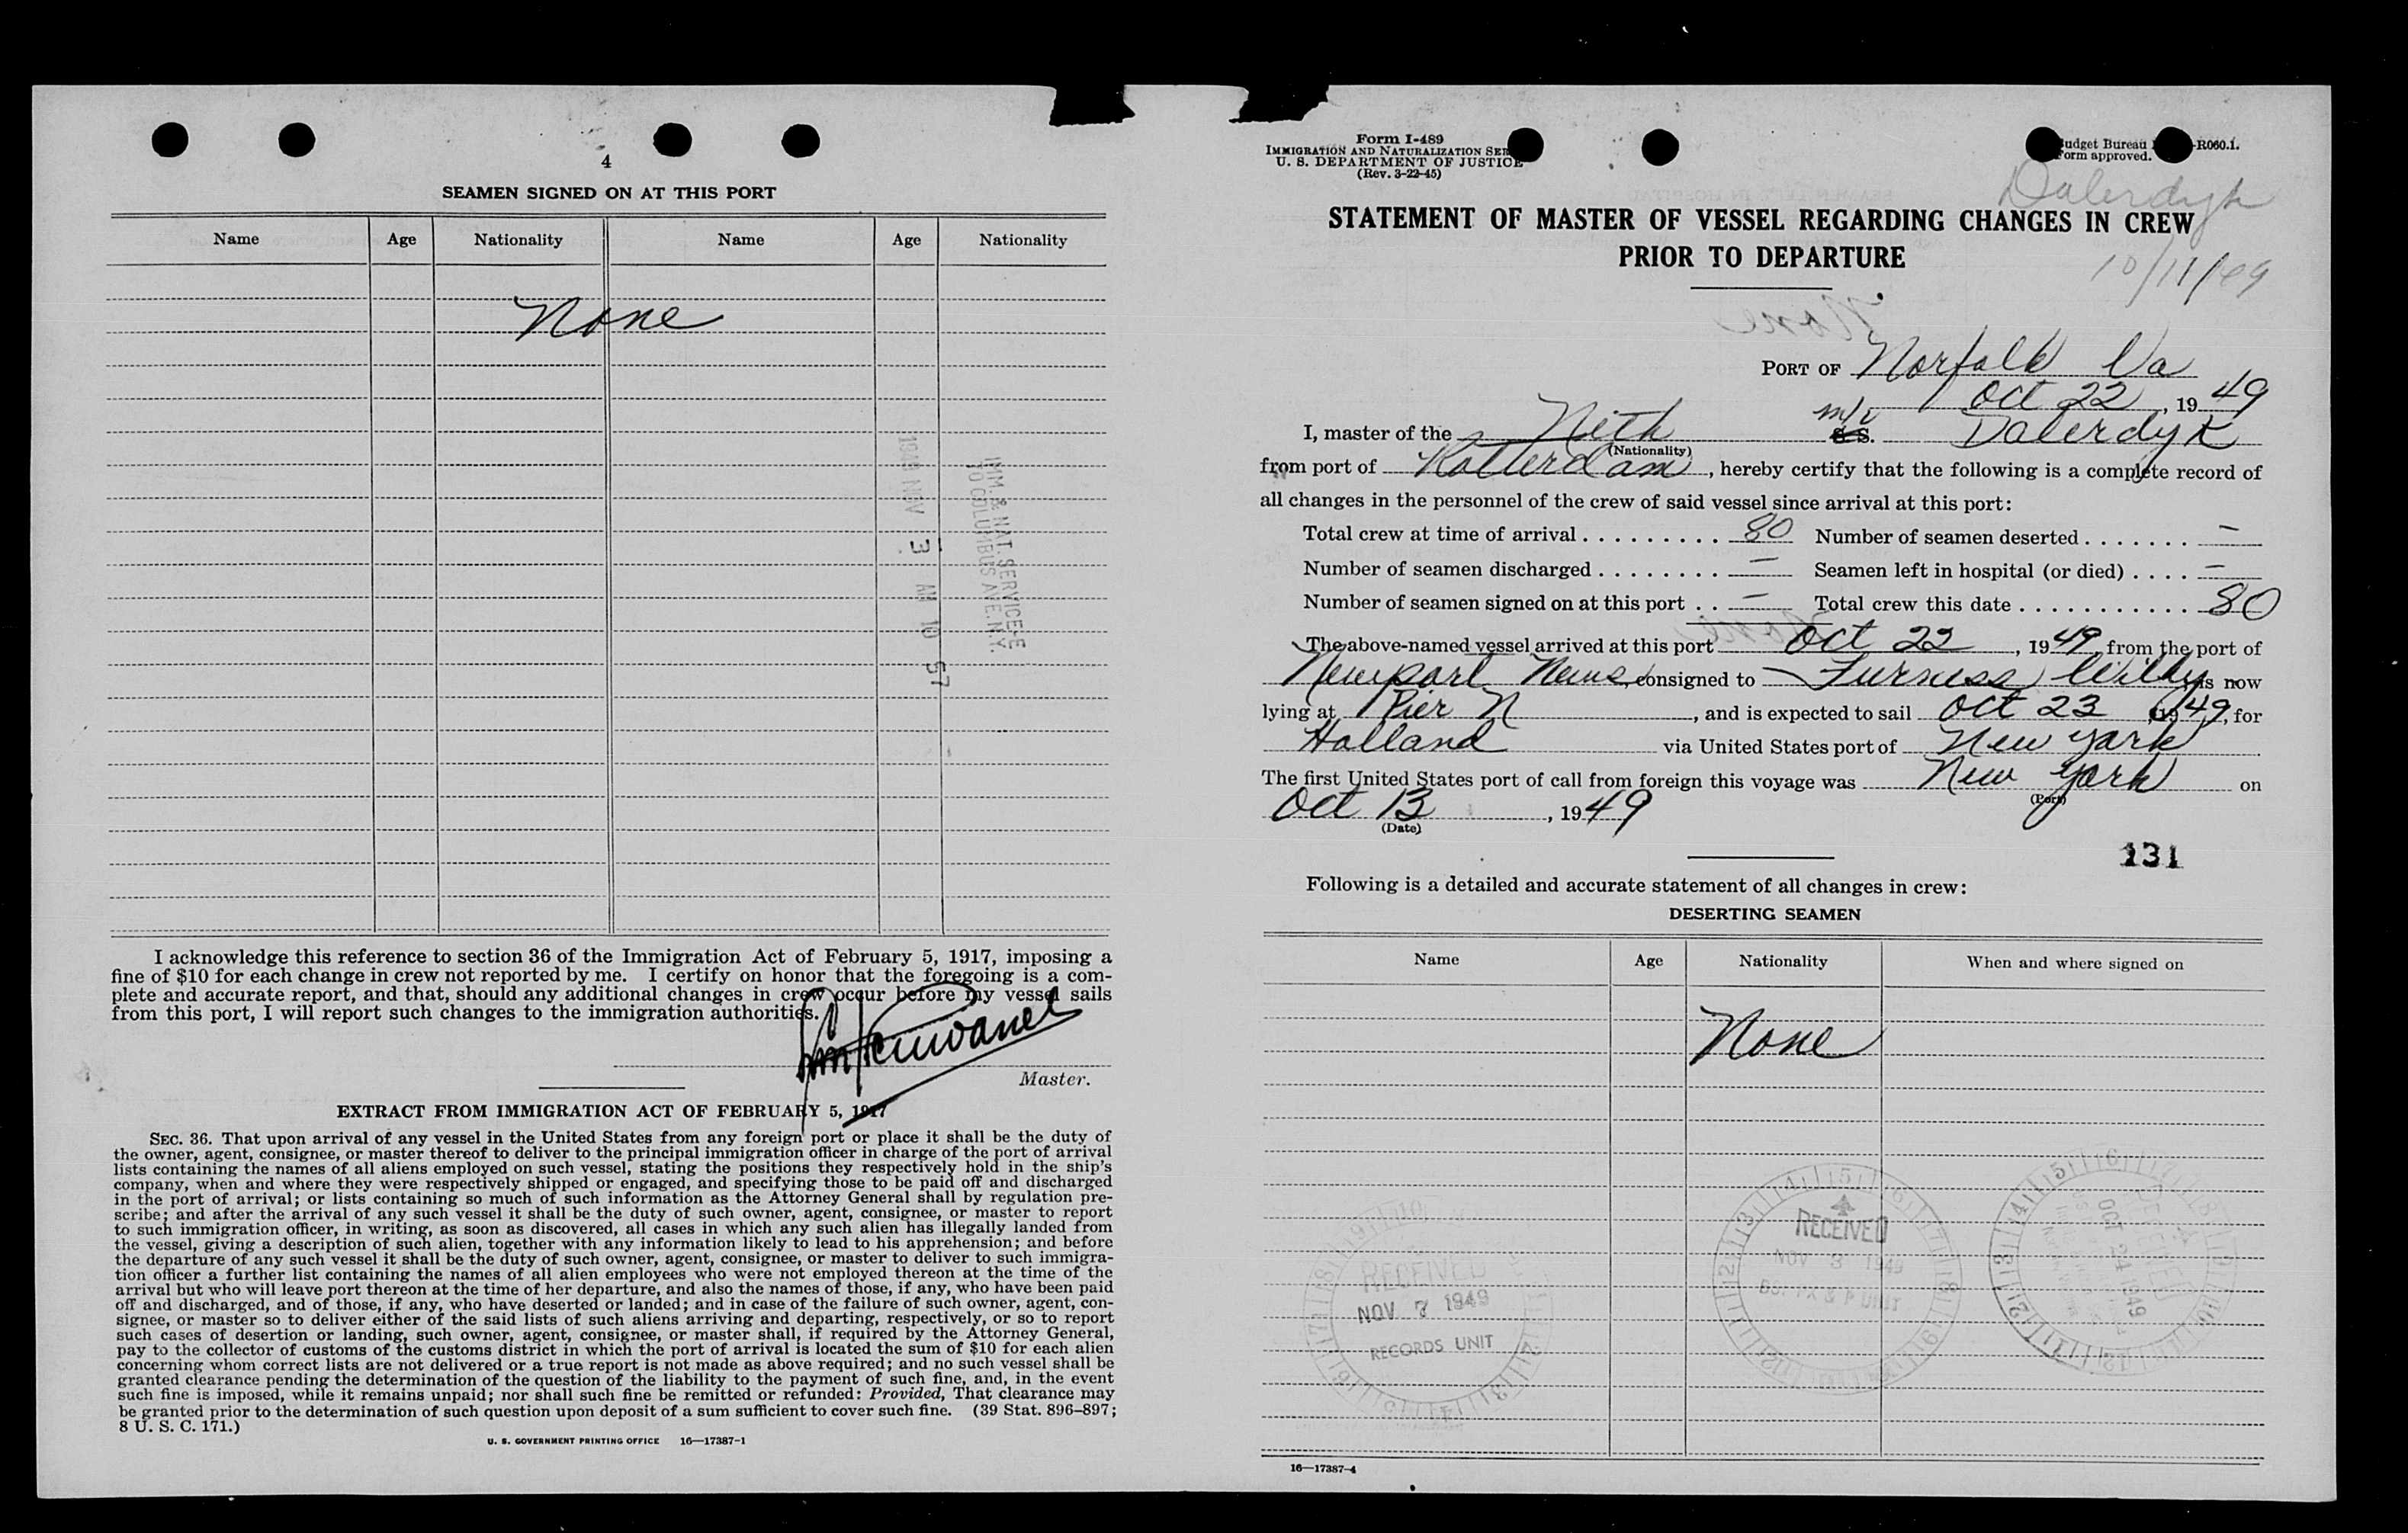 4
SEAMEN SIGNED ON AT THIS PORT
Name Age Nationality Name Age Nationality
None
1949 NOV 3 AM 10 57
IMM. & NAT. SERVICE
70 COLUMBUS AVE. N.Y.
I acknowledge this reference to section 36 of the Immigration Act of February 5, 1917, imposing a
fine of $10 for each change in crew not reported by me. I certify on honor that the foregoing is a com-
plete and accurate report, and that, should any additional changes in crew occur before my vessel sails
from this port, I will report such changes to the immigration authorities.
Master.
EXTRACT FROM IMMIGRATION ACT OF FEBRUARY 5, 1917
SEC. 36. That upon arrival of any vessel in the United States from any foreign port or place it shall be the duty of
the owner, agent, consignee, or master thereof to deliver to the principal immigration officer in charge of the port of arrival
lists containing the names of all aliens employed on such vessel, stating the positions they respectively hold in the ship's
company, when and where they were respectively shipped or engaged, and specifying those to be paid off and discharged
in the port of arrival; or lists containing so much of such information as the Attorney General shall by regulation pre-
scribe; and after the arrival of any such vessel it shall be the duty of such owner, agent, consignee, or master to report
to such immigration officer, in writing, as soon as discovered, all cases in which any such alien has illegally landed from
the vessel, giving a description of such alien, together with any information likely to lead to his apprehension; and before
the departure of any such vessel it shall be the duty of such owner, agent, consignee, or master to deliver to such immigra-
tion officer a further list containing the names of all alien employees who were not employed thereon at the time of the
arrival but who will leave port thereon at the time of her departure, and also the names of those, if any, who have been paid
off and discharged, and of those, if any, who have deserted or landed; and in case of the failure of such owner, agent, con-
signee, or master so to deliver either of the said lists of such aliens arriving and departing, respectively, or so to report
such cases of desertion or landing, such owner, agent, consignee, or master shall, if required by the Attorney General,
pay to the collector of customs of the customs district in which the port of arrival is located the sum of $10 for each alien
concerning whom correct lists are not delivered or a true report is not made as above required; and no such vessel shall be
granted clearance pending the determination of the question of the liability to the payment of such fine, and, in the event
such fine is imposed, while it remains unpaid; nor shall such fine be remitted or refunded: Provided, That clearance may
be granted prior to the determination of such question upon deposit of a sum sufficient to cover such fine. (39 Stat. 896–897;
8 U. S. C. 171.)
U. S. GOVERNMENT PRINTING OFFICE 16—17387-1
Form I-489
IMMIGRATION AND NATURALIZATION SER
U. S. DEPARTMENT OF JUSTICE
(Rev. 3-22-45)
udget Bureau -R060.1.
orm approved.
Dalerdyk
10/11/49
STATEMENT OF MASTER OF VESSEL REGARDING CHANGES IN CREW
PRIOR TO DEPARTURE
PORT OF Norfolk Va
Oct 22, 1949
I, master of the Neth m/v S.S. Dalerdyk
(Nationality)
from port of Rotterdam, hereby certify that the following is a complete record of
all changes in the personnel of the crew of said vessel since arrival at this port:
Total crew at time of arrival 80 Number of seamen deserted —
Number of seamen discharged — Seamen left in hospital (or died) —
Number of seamen signed on at this port — Total crew this date 80
The above-named vessel arrived at this port Oct 22, 1949, from the port of
Newport News, consigned to Furness Withy, is now
lying at Pier N, and is expected to sail Oct 23, 1949, for
Holland via United States port of New York
The first United States port of call from foreign this voyage was New York on
(Port)
Oct 13, 1949
(Date)
131
Following is a detailed and accurate statement of all changes in crew:
DESERTING SEAMEN
Name Age Nationality When and where signed on
None
RECEIVED
NOV 7 1949
RECORDS UNIT
RECEIVED
NOV 3 1949
OCT 24 1949
16—17387-4